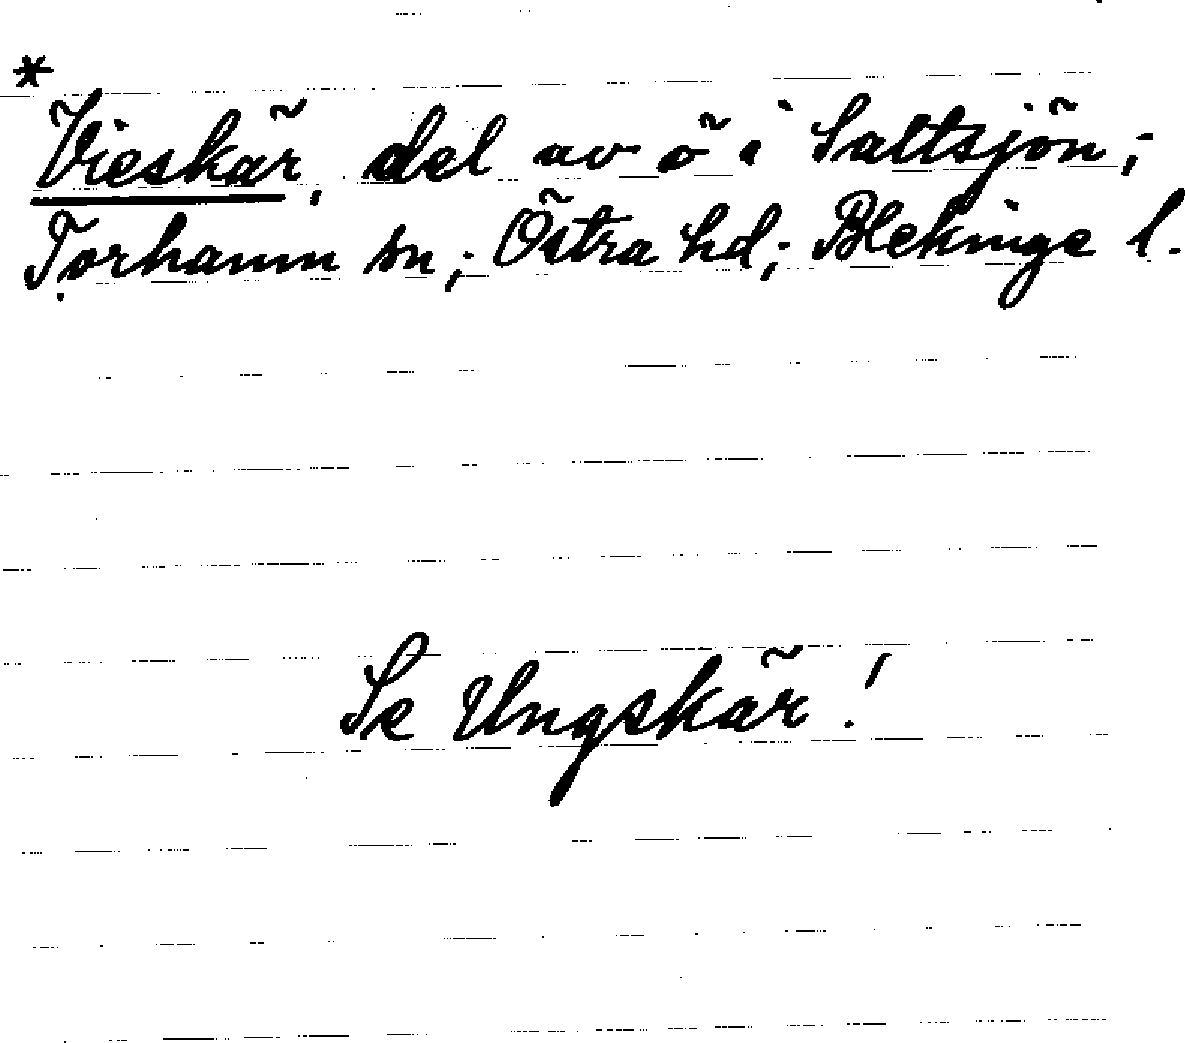 *
Vieskär, del av ö i Saltsjön;
Torhamn sn; Östra hd; Blekinge l.
Se Ungskär!